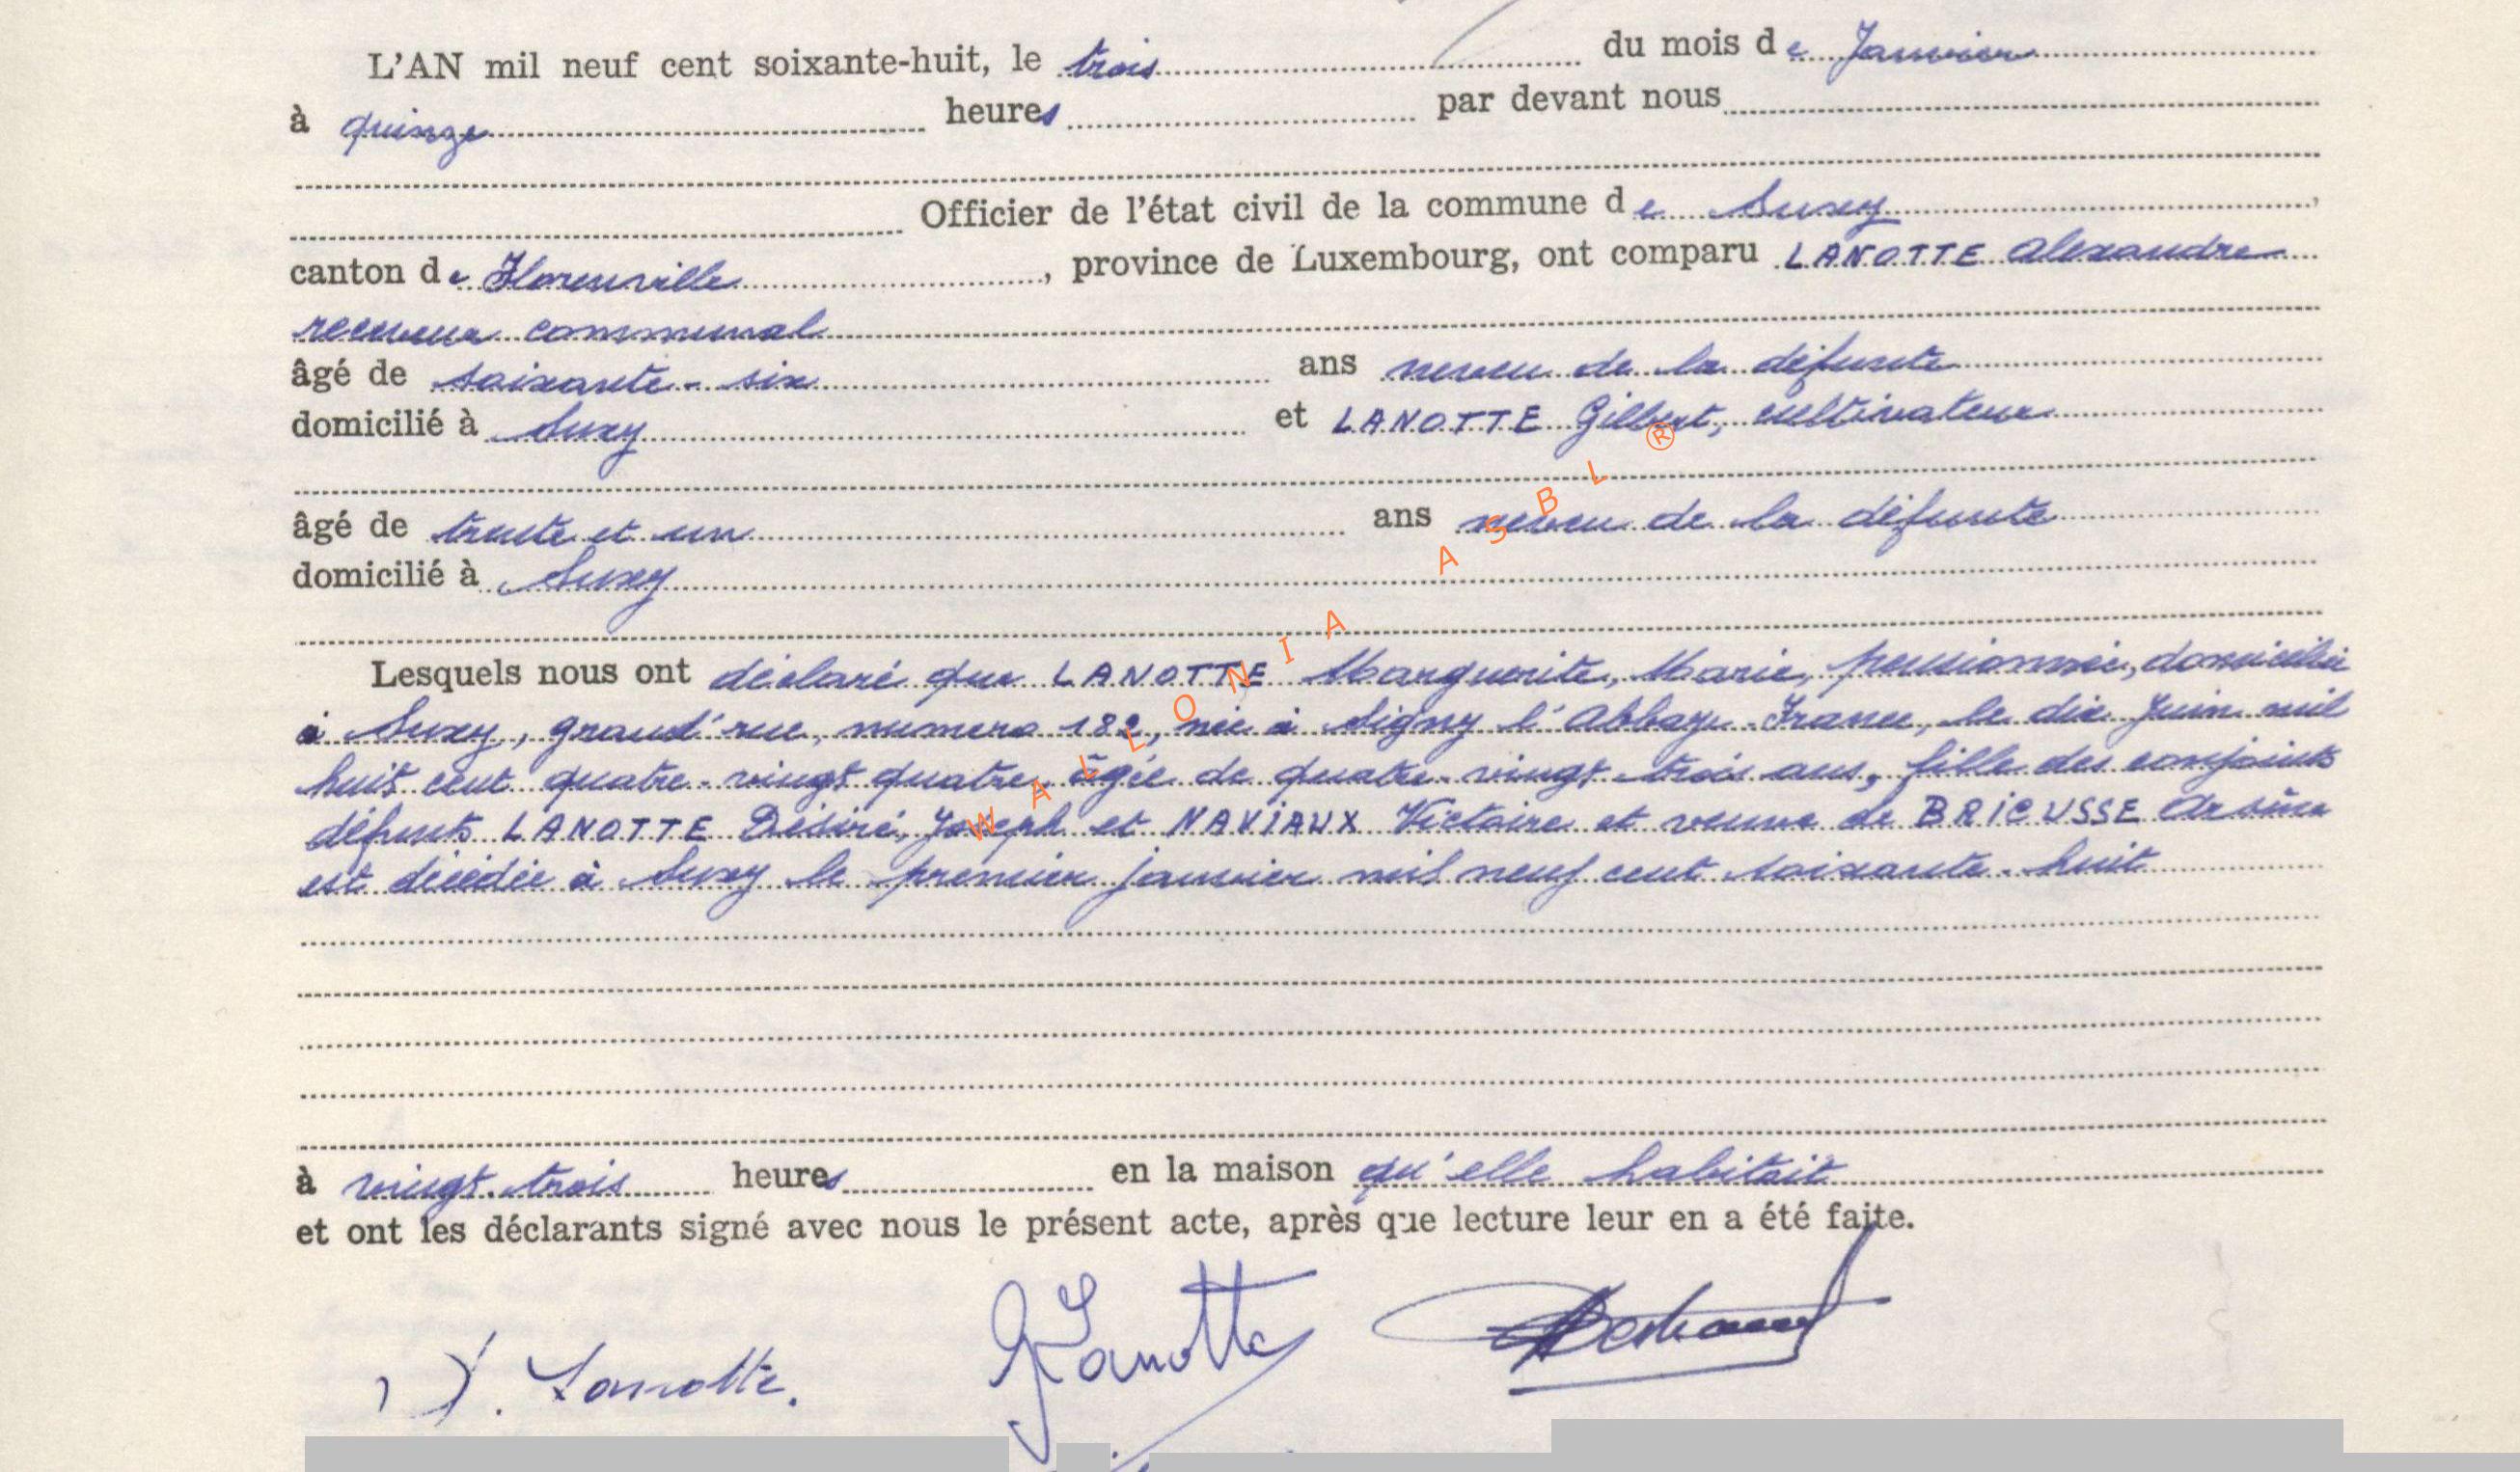 L'AN mil neuf cent soixante-huit, le trois du mois de Janvier
à quinze heures par devant nous
Officier de l'état civil de la commune de Suxy,
canton de Florenville, province de Luxembourg, ont comparu LANOTTE Alexandre
receveur communal
âgé de soixante-six ans neveu de la défunte
domicilié à Suxy et LANOTTE Gilbert, cultivateur
âgé de trente et un ans neveu de la défunte
domicilié à Suxy
Lesquels nous ont déclaré que LANOTTE Marguerite, Marie, pensionnée, domiciliée
à Suxy, grand'rue, numero 182, née à Signy l'Abbaye-France, le dix Juin mil
huit cent quatre-vingt quatre, âgée de quatre-vingt-trois ans, fille des conjoints
défunts LANOTTE Désiré, Joseph et NAVIAUX Victoire et veuve de BRICUSSE Arsène
est décédée à Suxy le premier janvier mil neuf cent soixante-huit
à vingt-trois heures en la maison qu'elle habitait
et ont les déclarants signé avec nous le présent acte, après que lecture leur en a été faite.
Lanotte. G Lanotte
WALLONIA ASBL ®